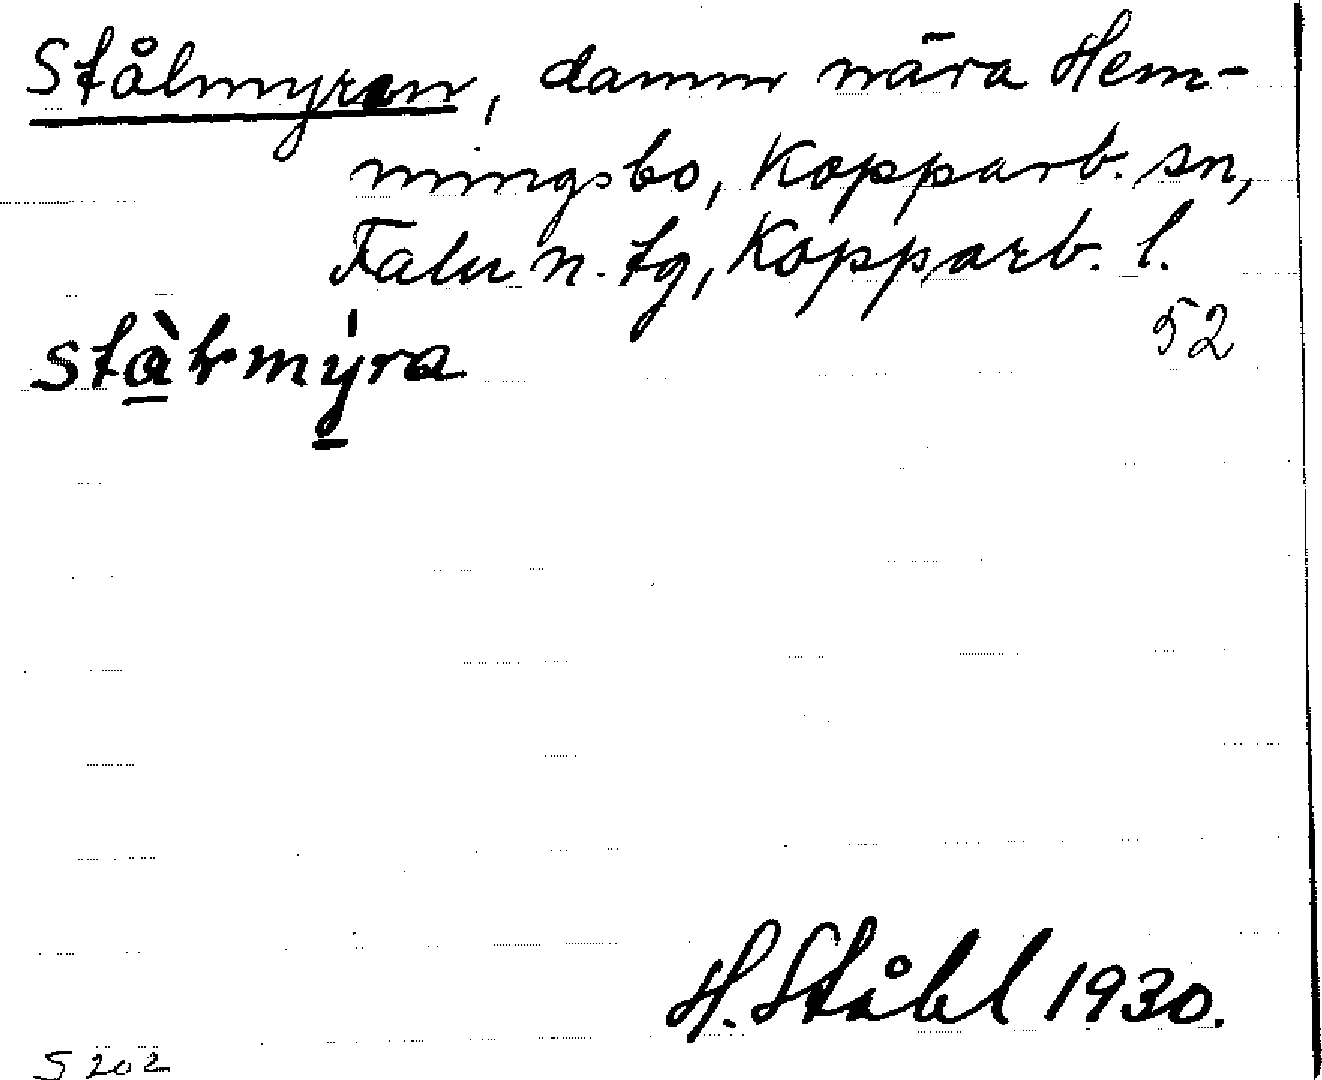 Stålmyran, damm nära Hem-
mingsbo, Kopparb. sn,
Falu n. tg, Kopparb. l.
52
H. Ståhl 1930.
S 202